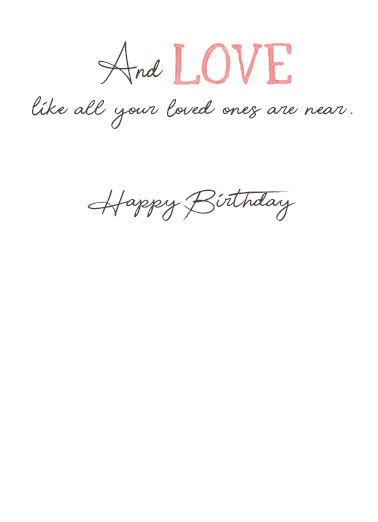 And LOVE
like all your loved ones are near.
Happy Birthday